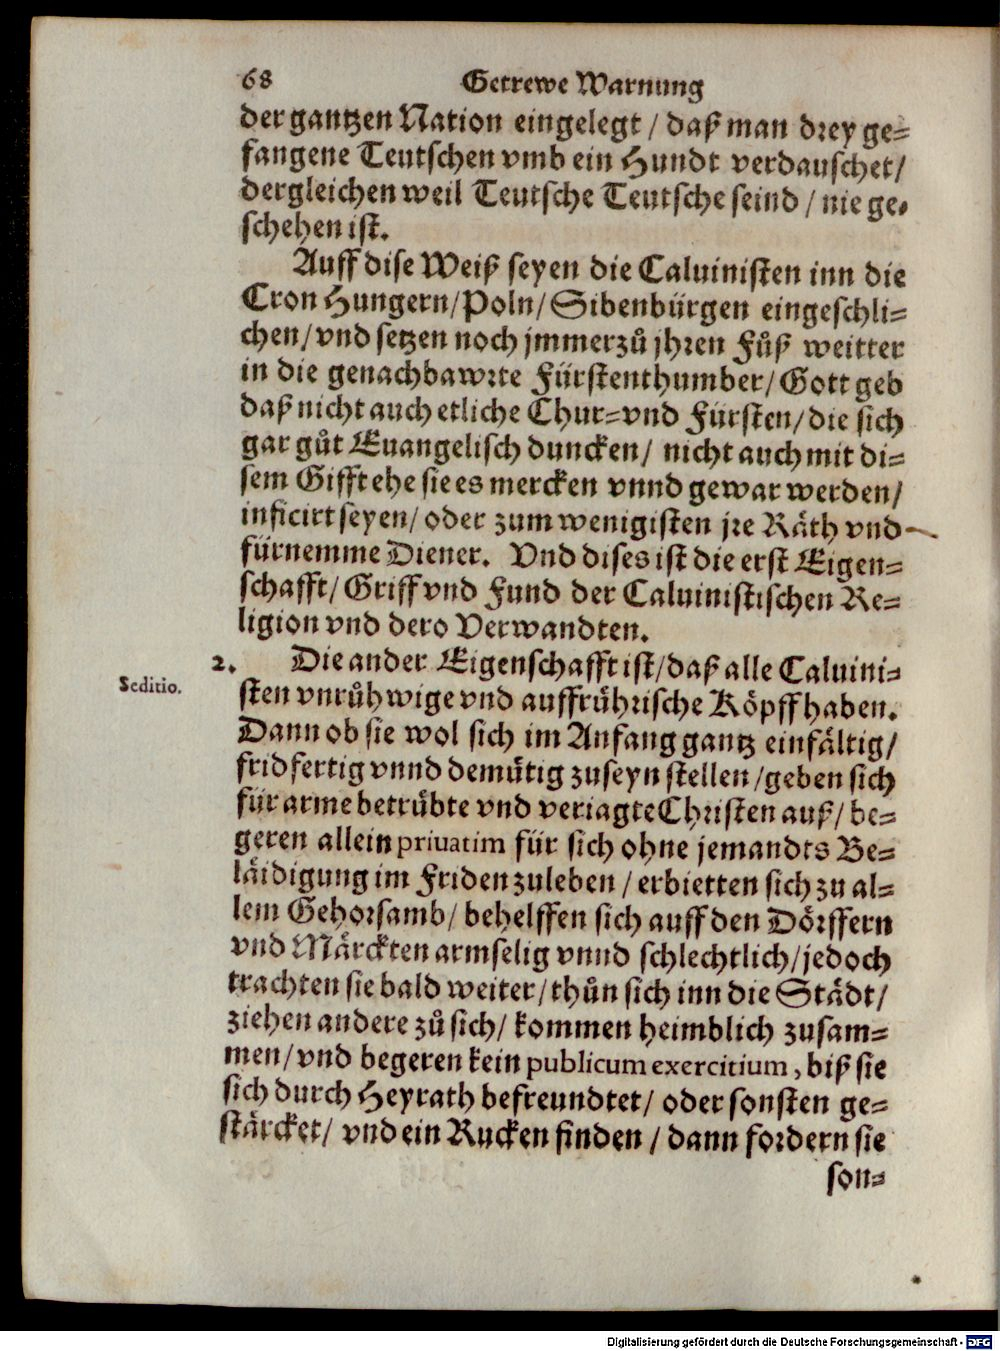 68 Getrewe Warnung
der gantzen Nation eingelegt / daß man drey ge=
fangene Teutschen vmb ein Hundt verdauschet /
dergleichen weil Teutsche Teutsche seind / nie ge=
schehen ist.
Auff dise Weiß seyen die Caluinisten inn die
Cron Hungern / Poln / Sibenbürgen eingeschli=
chen / vnd setzen noch jmmerzů jhren Fůß weitter
in die genachbawrte Fürstenthumber / Gott geb
daß nicht auch etliche Chur= vnd Fürsten / die sich
gar gůt Euangelisch duncken / nicht auch mit di=
sem Gifft ehe sie es mercken vnnd gewar werden /
inficirt seyen / oder zum wenigisten jre Räth vnd
fürnemme Diener. Vnd dises ist die erst Eigen=
schafft / Griff vnd Fund der Caluinistischen Re=
ligion vnd dero Verwandten.
2. Die ander Eigenschafft ist / daß alle Caluini=
Seditio.
sten vnrůhwige vnd auffrührische Köpff haben.
Dann ob sie wol sich im Anfang gantz einfältig /
fridfertig vnnd demütig zuseyn stellen / geben sich
für arme betrübte vnd veriagte Christen auß / be=
geren allein priuatim für sich ohne jemandts Be=
läidigung im Friden zuleben / erbietten sich zu al=
lem Gehorsamb / behelffen sich auff den Dörffern
vnd Märckten armselig vnnd schlechtlich / jedoch
trachten sie bald weiter / thůn sich inn die Städt /
ziehen andere zů sich / kommen heimblich zusam=
men / vnd begeren kein publicum exercitium, biß sie
sich durch Heyrath befreundtet / oder sonsten ge=
stärcket / vnd ein Rucken finden / dann fordern sie
son=
Digitalisierung gefördert durch die Deutsche Forschungsgemeinschaft - DFG